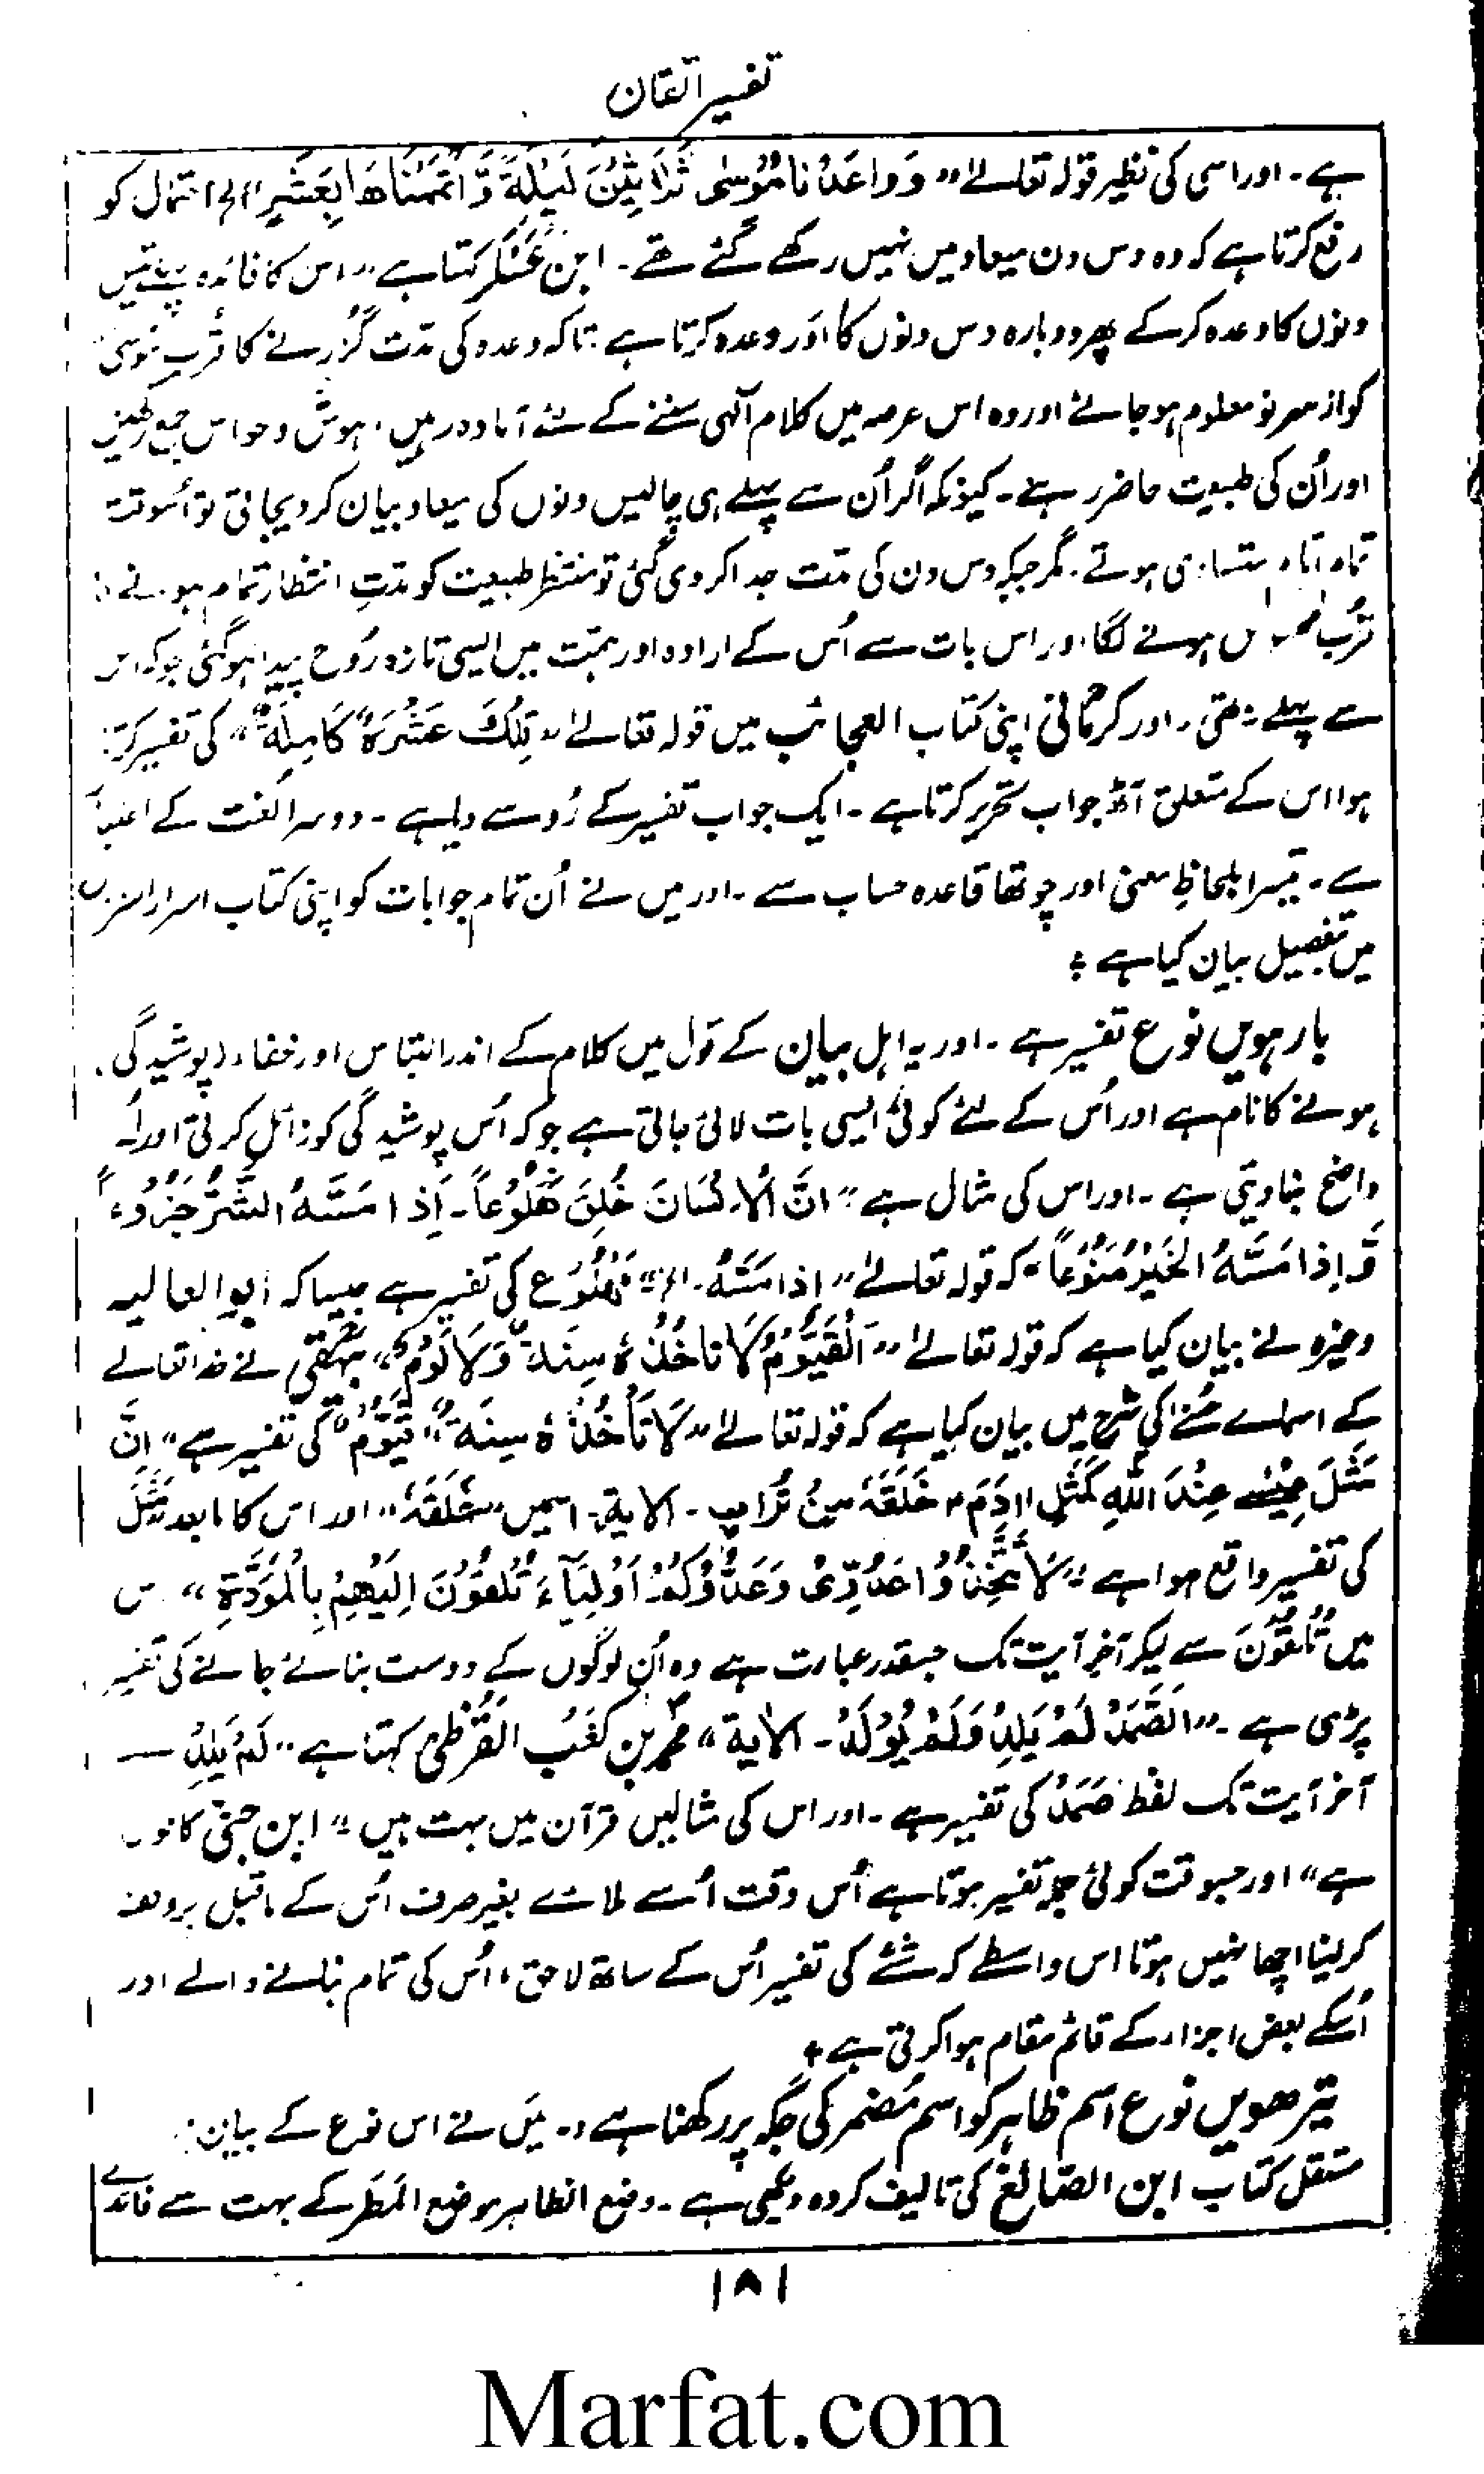 تفسیر اتقان
ہے۔ اور اسی کی نظیر قولہ تعالےٰ "وَوَاعَدْنَا مُوْسٰی ثَلَاثِیْنَ لَیْلَةً وَّاَتْمَمْنَاهَا بِعَشْرٍ" الخ احتمال کو
رفع کرتا ہے کہ وہ دس دن میعاد میں نہیں رکھے گئے تھے۔ ابن عَسْکر کہتا ہے "اس کا فائدہ پہلے تیس
دنوں کا وعدہ کرکے پھر دوبارہ دس دنوں کا اَور وعدہ کرتا ہے تاکہ وعدہ کی مدّت گُزرنے کا قُرب مُوسیٰ
کو از سرِ نو معلوم ہوجائے اور وہ اس عرصہ میں کلام آلٰہی سننے کے لئے آمادہ رہیں، ہوش و حواس جمع رکھیں
اور اُن کی طبیعت حاضر رہے۔ کیونکہ اگر اُن سے پہلے ہی چالیس دنوں کی میعاد بیان کردیجاتی تو اُسوقت
تمام ایام متساوی ہوتے۔ مگر جبکہ دس دن کی مدّت جدا کردی گئی تو منتظر طبیعت کو مدّتِ انتظار تمام ہونے
قُرب محسوس ہونے لگا اور اس بات سے اُس کے ارادہ اور ہمّت میں ایسی تازہ رُوح پیدا ہوگئی جو کہ اس
سے پہلے نہ تھی۔ اور کرمانی اپنی کتاب العجائب میں قولہ تعالےٰ "تِلْكَ عَشَرَةٌ كَامِلَةٌ" کی تفسیر کرتا
ہوا اس کے متعلق آٹھ جواب تحریر کرتا ہے۔ ایک جواب تفسیر کے رُو سے دیا ہے۔ دوسرا لُغت کے اعتبار
سے۔ تیسرا بلحاظِ معنی اور چوتھا قاعدہ حساب سے۔ اور میں نے اُن تمام جوابات کو اپنی کتاب اسرار التنزیل
میں تفصیل بیان کیا ہے ÷
بارہویں نوع تفسیر ہے۔ اور یہ اہلِ بیان کے قول میں کلام کے اندر التباس اور خفاء (پوشیدگی)
ہونے کا نام ہے اور اُس کے لئے کوئی ایسی بات لائی جاتی ہے جو کہ اُس پوشیدگی کو زائل کرتی اور اُسے
واضح بنادیتی ہے۔ اور اس کی مثال ہے "اِنَّ الْاِنْسَانَ خُلِقَ هَلُوْعاً۔ اِذَا مَسَّهُ الشَّرُّ جَزُوْعاً
وَّاِذَا مَسَّهُ الْخَيْرُ مَنُوْعاً" کہ قولہ تعالےٰ "اِذَا مَسَّهُ۔ الخ" هَلُوْع کی تفسیر ہے جیسا کہ ابو العالیہ
وغیرہ نے بیان کیا ہے کہ قولہ تعالےٰ "اَلْقَيُّوْمُ لَا تَاخُذُهٗ سِنَةٌ وَّلَا نَوْمٌ" بیہقی نے خدا تعالےٰ
کے اسمائے حُسنےٰ کی شرح میں بیان کیا ہے کہ قولہ تعالےٰ "لَا تَأْخُذُهٗ سِنَةٌ" "قَيُّوْم" کی تفسیر ہے "اِنَّ
مَثَلَ عِيْسٰے عِنْدَ اللّٰهِ كَمَثَلِ اٰدَمَ" خَلَقَهٗ مِنْ تُرَابٍ۔ الآیۃ۔ اسمیں "خَلَقَهٗ" اور اس کا مابعد مَثَل
کی تفسیر واقع ہوا ہے "لَا تَتَّخِذُوْا عَدُوِّیْ وَعَدُوَّكُمْ اَوْلِيَآءَ تُلْقُوْنَ اِلَيْهِمْ بِالْمَوَدَّةِ"
میں تُلْقُوْنَ سے لیکر آخر آیت تک جسقدر عبارت ہے وہ اُن لوگوں کے دوست بنائے جانے کی تفسیر
پڑی ہے۔ "الصَّمَدُ لَمْ يَلِدْ وَلَمْ يُوْلَدْ۔ الآیۃ" محمد بن کَعْب القُرَظِی کہتا ہے "لَمْ يَلِدْ ۔۔
آخر آیت تک لفظ صَمَدْ کی تفسیر ہے۔ اور اس کی مثالیں قرآن میں بہت ہیں" ابن جنی کا قول
ہے" اور جسوقت کوئی جملہ تفسیر ہوتا ہے اُس وقت اُسے ملائے بغیر صرف اُس کے ماقبل پر وقف
کرلینا اچھا نہیں ہوتا اس واسطے کہ شَے کی تفسیر اُس کے ساتھ لاحق، اُس کی تمام بنانے والے اور
اُسکے بعض اجزاء کے قائم مقام ہوا کرتی ہے ÷
تیرھویں نوع اسم ظاہر کو اسم مُضمر کی جگہ پر رکھنا ہے۔ مَیں نے اس نوع کے بیان
مستقل کتاب ابن الصّائغ کی تالیف کردہ دیکھی ہے۔ وضع الظاہر موضع المُضمر کے بہت سے فائدے
۱۸۱
Marfat.com